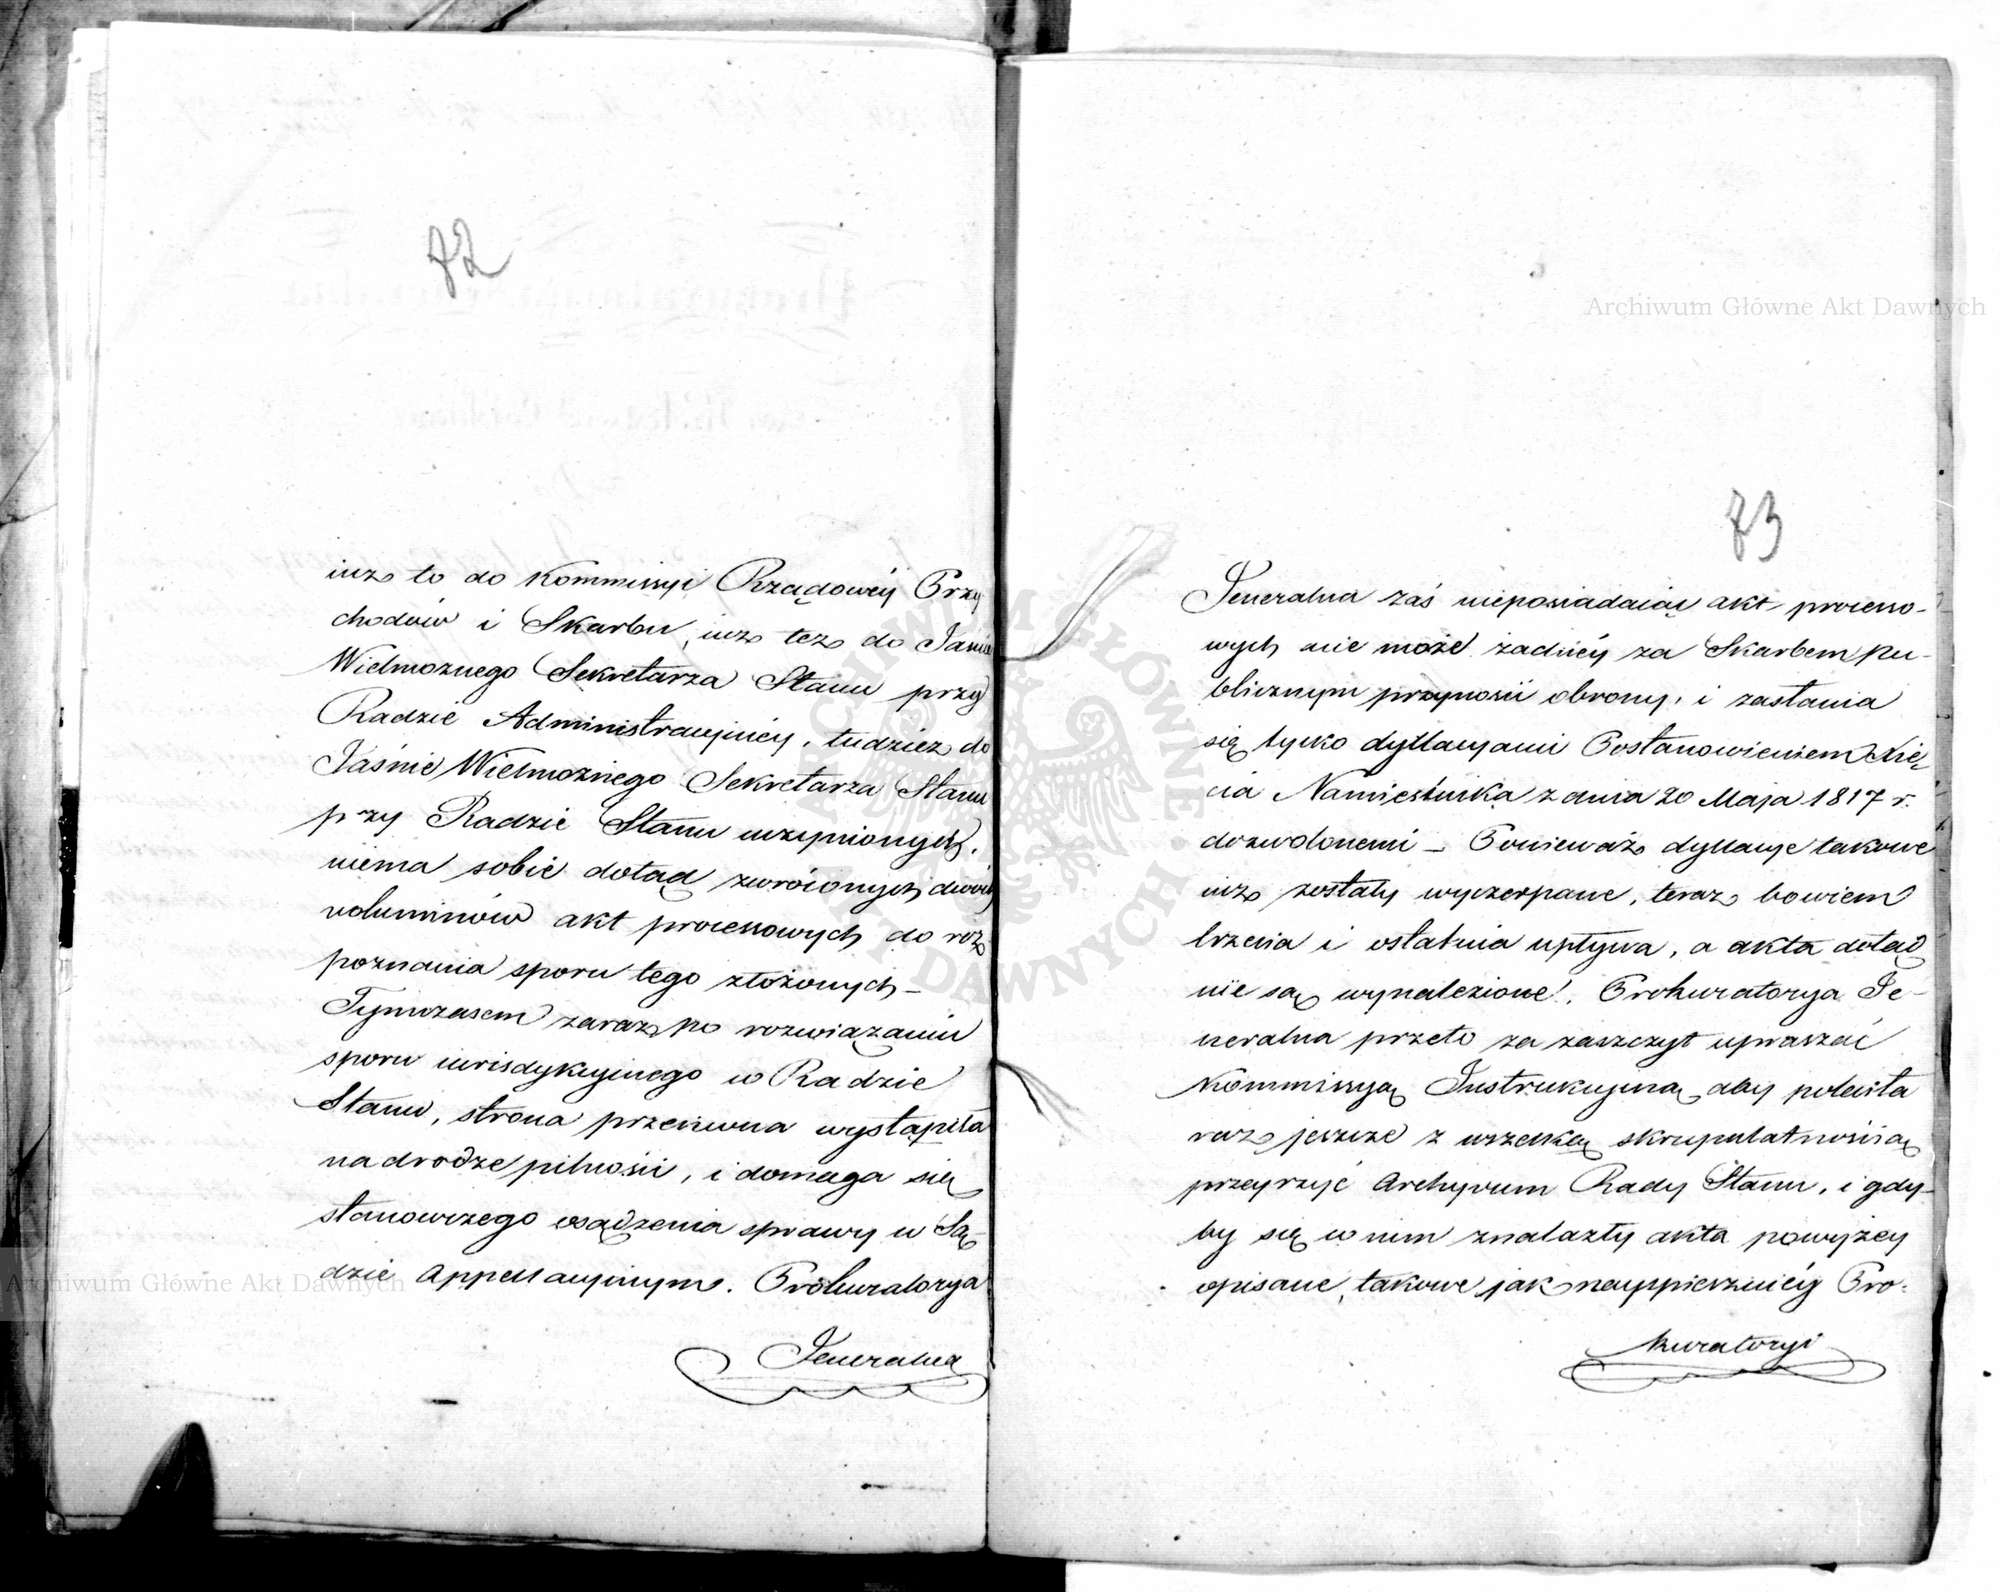 82
iuż to do Kommissyi Rządowéy Przy
chodów i Skarbu, iuż też do Jaśnie
Wielmożnego Sekretarza Stanu przy
Radzie Administracyinéy, tudzież do
Jaśnie Wielmożnego Sekretarza Stanu
przy Radzie Stanu uczynionych,
niema sobie dotąd zwróconych dwóch
voluminów akt processowych do roz
poznania sporu tego złożonych –
Tymczasem zaraz po rozwiązaniu
sporu iurisdykcyinego w Radzie
Stanu, strona przeciwna wystąpiła
na drodze pilności, i domaga się
stanowczego osądzenia sprawy w Są-
dzie Appellacyinym. Prokuratorya
Jeneralna
83
Jeneralna zaś nieposiadaiąc akt processo-
wych nie może żadnéy za Skarbem pu-
blicznym przynosić obrony, i zasłania
się tylko dyllacyami Postanowieniem Xię-
cia Namiestnika z dnia 20 Maja 1817 r.
dozwolonemi – Ponieważ dyllacye takowe
iuż zostały wyczerpane, teraz bowiem
trzecia i ostatnia upływa, a akta dotąd
nie są wynalezione, Prokuratorya Je-
neralna przeto za zaszczyt upraszać
Kommissyą Instrukcyiną, aby poleciła
raz jeszcze z wszelką skrupulatnością
przeyrzyć Archyvum Rady Stanu, i gdy-
by się w nim znalazły akta powyżey
opisane, takowe jak nayspieszniéy Pro-
kuratoryi
Archiwum Główne Akt Dawnych
Archiwum Główne Akt Dawnych
ARCHIWUM GŁÓWNE AKT DAWNYCH